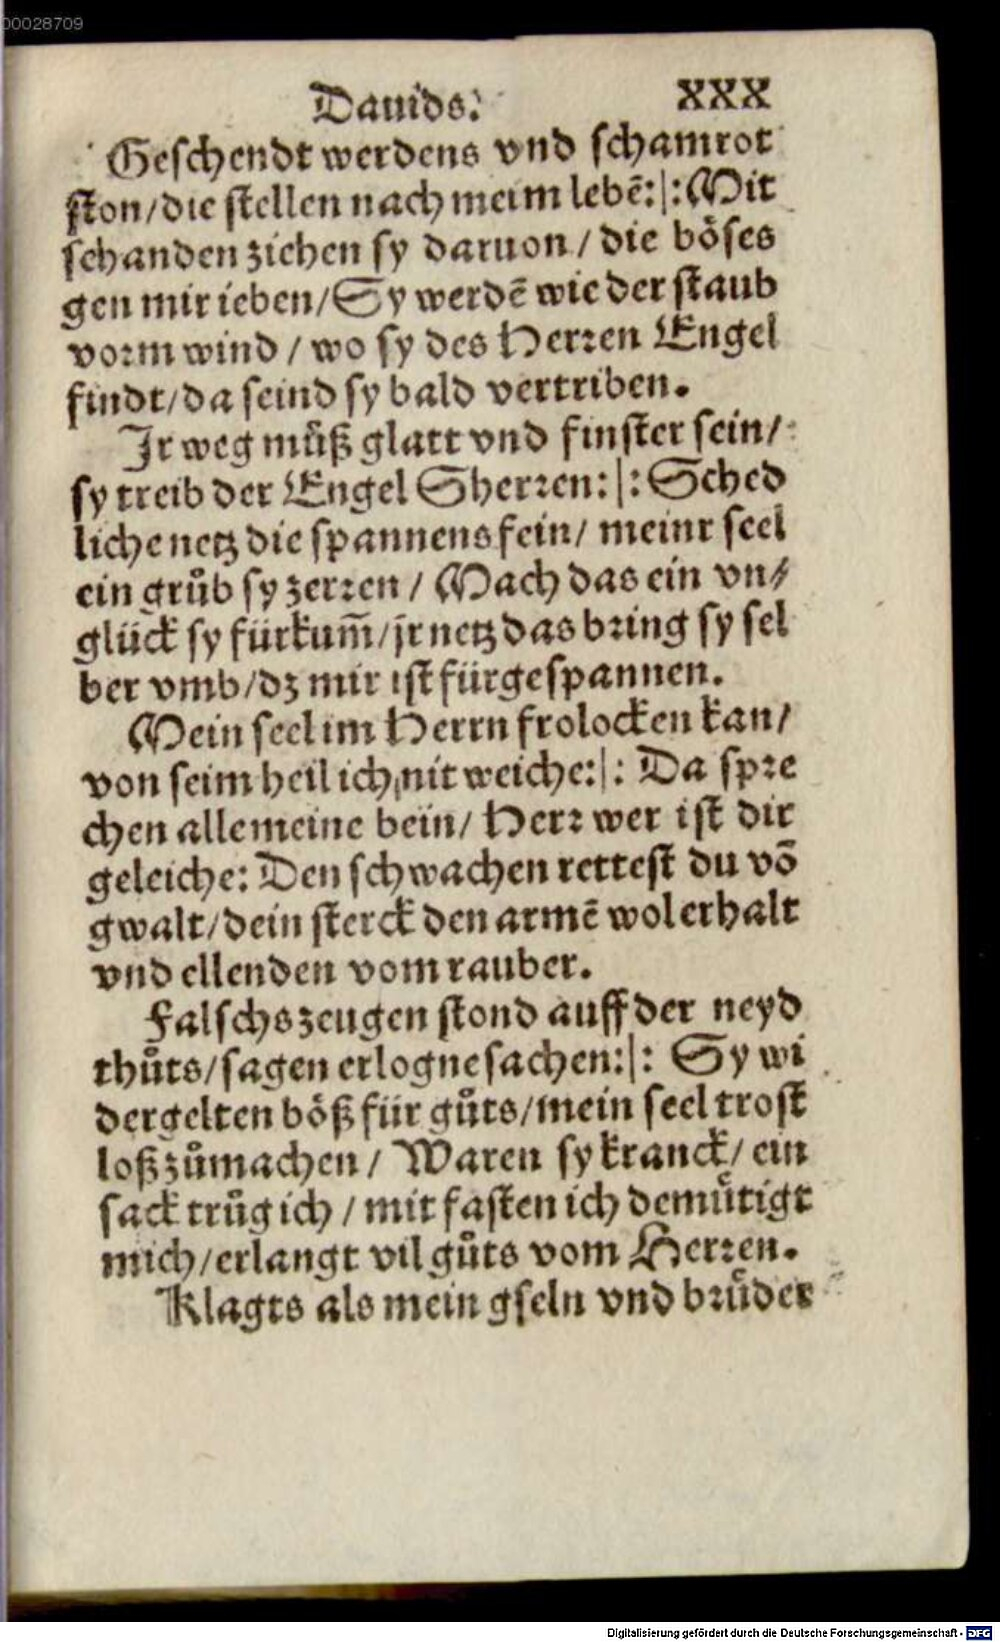 00028709
Dauids. XXX
Geschendt werdens vnd schamrot
ston/die stellen nach meim lebẽ:|:Mit
schanden ziehen sy daruon/die bőses
gen mir ieben/Sy werdẽ wie der staub
vorm wind/wo sy des Herren Engel
findt/da seind sy bald vertriben.
Jr weg můß glatt vnd finster sein/
sy treib der Engel Sherren:|:Sched
liche netz die spannens fein/meinr seel
ein grůb sy zerren/Mach das ein vn⸗
glück sy fürkum̃/jr netz das bring sy sel
ber vmb/dz mir ist fürgespannen.
Mein seel im Herrn frolocken kan/
von seim heil ich nit weiche:|: Da spre
chen alle meine bein/Herr wer ist dir
geleiche: Den schwachen rettest du võ
gwalt/dein sterck den armẽ wol erhalt
vnd ellenden vom rauber.
Falschs zeugen stond auff der neyd
thůts/sagen erlogne sachen:|: Sy wi
dergelten böß für gůts/mein seel trost
loß zůmachen/Waren sy kranck/ein
sack trůg ich/mit fasten ich demütigt
mich/erlangt vil gůts vom Herren.
Klagts als mein gseln vnd brüder
Digitalisierung gefördert durch die Deutsche Forschungsgemeinschaft - DFG